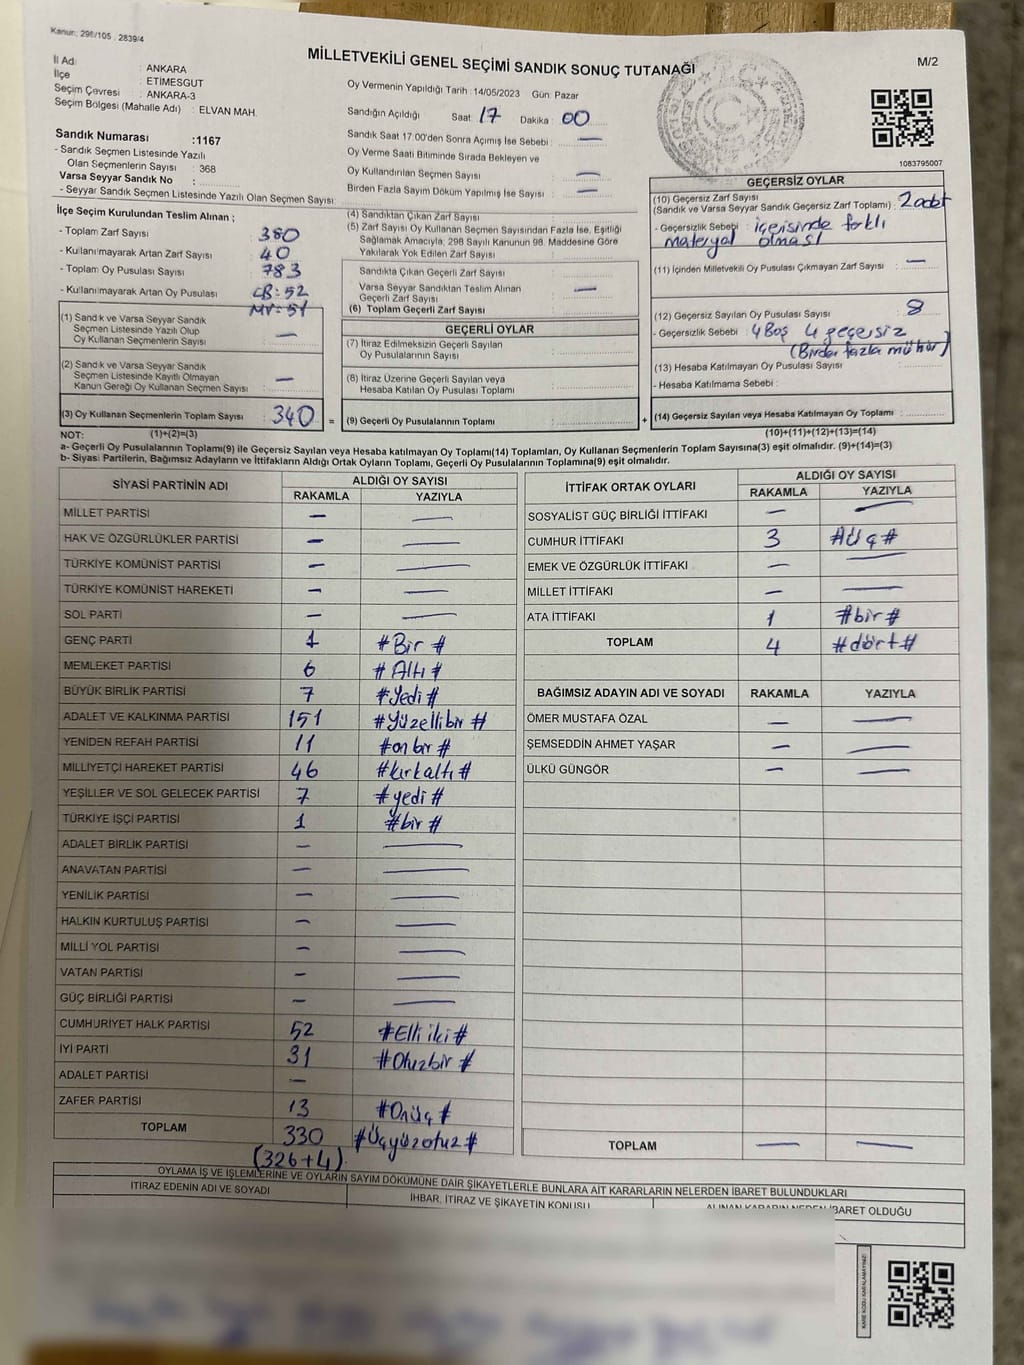 Kanun: 298/105 , 2839/4
MİLLETVEKİLİ GENEL SEÇİMİ SANDIK SONUÇ TUTANAĞI
M/2
İl Adı : ANKARA
İlçe : ETİMESGUT
Seçim Çevresi : ANKARA-3
Seçim Bölgesi (Mahalle Adı) : ELVAN MAH.
Sandık Numarası :1167
- Sandık Seçmen Listesinde Yazılı
Olan Seçmenlerin Sayısı : 368
Varsa Seyyar Sandık No :
- Seyyar Sandık Seçmen Listesinde Yazılı Olan Seçmen Sayısı:
Oy Vermenin Yapıldığı Tarih :14/05/2023 Gün: Pazar
Sandığın Açıldığı Saat: 17 Dakika : 00
Sandık Saat 17:00'den Sonra Açımış İse Sebebi : —
Oy Verme Saati Bitiminde Sırada Bekleyen ve
Oy Kullandırılan Seçmen Sayısı : —
Birden Fazla Sayım Döküm Yapılmış İse Sayısı : —
1083795007
İlçe Seçim Kurulundan Teslim Alınan ;
- Toplam Zarf Sayısı : 380
- Kullanılmayarak Artan Zarf Sayısı : 40
- Toplam Oy Pusulası Sayısı : 783
- Kullanılmayarak Artan Oy Pusulası : CB: 52
MV: 51
(1) Sandık ve Varsa Seyyar Sandık
Seçmen Listesinde Yazılı Olup
Oy Kullanan Seçmenlerin Sayısı : —
(2) Sandık ve Varsa Seyyar Sandık
Seçmen Listesinde Kayıtlı Olmayan
Kanun Gereği Oy Kullanan Seçmen Sayısı : —
(3) Oy Kullanan Seçmenlerin Toplam Sayısı : 340
(4) Sandıktan Çıkan Zarf Sayısı :
(5) Zarf Sayısı Oy Kullanan Seçmen Sayısından Fazla İse, Eşitliği
Sağlamak Amacıyla; 298 Sayılı Kanunun 98. Maddesine Göre
Yakılarak Yok Edilen Zarf Sayısı :
Sandıkta Çıkan Geçerli Zarf Sayısı :
Varsa Seyyar Sandıktan Teslim Alınan
Geçerli Zarf Sayısı : —
(6) Toplam Geçerli Zarf Sayısı :
GEÇERLİ OYLAR
(7) İtiraz Edilmeksizin Geçerli Sayılan
Oy Pusulalarının Sayısı :
(8) İtiraz Üzerine Geçerli Sayılan veya
Hesaba Katılan Oy Pusulası Toplamı :
= (9) Geçerli Oy Pusulalarının Toplamı :
GEÇERSİZ OYLAR
(10) Geçersiz Zarf Sayısı
(Sandık ve Varsa Seyyar Sandık Geçersiz Zarf Toplamı) : 2 adet
- Geçersizlik Sebebi : içerisinde farklı
materyal olması
(11) İçinden Milletvekili Oy Pusulası Çıkmayan Zarf Sayısı : —
(12) Geçersiz Sayılan Oy Pusulası Sayısı : 8
- Geçersizlik Sebebi : 4 Boş 4 geçersiz
(Birden fazla mühür)
(13) Hesaba Katılmayan Oy Pusulası Sayısı :
- Hesaba Katılmama Sebebi :
+ (14) Geçersiz Sayılan veya Hesaba Katılmayan Oy Toplamı :
NOT: (1)+(2)=(3)
(10)+(11)+(12)+(13)=(14)
a- Geçerli Oy Pusulalarının Toplamı(9) ile Geçersiz Sayılan veya Hesaba katılmayan Oy Toplamı(14) Toplamları, Oy Kullanan Seçmenlerin Toplam Sayısına(3) eşit olmalıdır. (9)+(14)=(3)
b- Siyasi Partilerin, Bağımsız Adayların ve İttifakların Aldığı Ortak Oyların Toplamı, Geçerli Oy Pusulalarının Toplamına(9) eşit olmalıdır.
SİYASİ PARTİNİN ADI
ALDIĞI OY SAYISI
RAKAMLA YAZIYLA
MİLLET PARTİSİ — —
HAK VE ÖZGÜRLÜKLER PARTİSİ — —
TÜRKİYE KOMÜNİST PARTİSİ — —
TÜRKİYE KOMÜNİST HAREKETİ — —
SOL PARTİ — —
GENÇ PARTİ 1 #Bir #
MEMLEKET PARTİSİ 6 #Altı #
BÜYÜK BİRLİK PARTİSİ 7 #Yedi #
ADALET VE KALKINMA PARTİSİ 151 #Yüzellibir #
YENİDEN REFAH PARTİSİ 11 #onbir #
MİLLİYETÇİ HAREKET PARTİSİ 46 #kırkaltı #
YEŞİLLER VE SOL GELECEK PARTİSİ 7 #yedi #
TÜRKİYE İŞÇİ PARTİSİ 1 #bir #
ADALET BİRLİK PARTİSİ — —
ANAVATAN PARTİSİ — —
YENİLİK PARTİSİ — —
HALKIN KURTULUŞ PARTİSİ — —
MİLLİ YOL PARTİSİ — —
VATAN PARTİSİ — —
GÜÇ BİRLİĞİ PARTİSİ — —
CUMHURİYET HALK PARTİSİ 52 #Elli iki #
İYİ PARTİ 31 #Otuzbir #
ADALET PARTİSİ —
ZAFER PARTİSİ 13 #Onüç #
TOPLAM 330 #Üçyüzotuz #
(326+4)
İTTİFAK ORTAK OYLARI
ALDIĞI OY SAYISI
RAKAMLA YAZIYLA
SOSYALİST GÜÇ BİRLİĞİ İTTİFAKI — —
CUMHUR İTTİFAKI 3 #Üç #
EMEK VE ÖZGÜRLÜK İTTİFAKI — —
MİLLET İTTİFAKI — —
ATA İTTİFAKI 1 #bir #
TOPLAM 4 #dört #
BAĞIMSIZ ADAYIN ADI VE SOYADI RAKAMLA YAZIYLA
ÖMER MUSTAFA ÖZAL — —
ŞEMSEDDİN AHMET YAŞAR — —
ÜLKÜ GÜNGÖR — —
TOPLAM — —
OYLAMA İŞ VE İŞLEMLERİNE VE OYLARIN SAYIM DÖKÜMÜNE DAİR ŞİKAYETLERLE BUNLARA AİT KARARLARIN NELERDEN İBARET BULUNDUKLARI
İTİRAZ EDENİN ADI VE SOYADI
İHBAR, İTİRAZ VE ŞİKAYETİN KONUSU
ALINAN KARARIN NEDEN İBARET OLDUĞU
KARE KODU KARALAMAYINIZ!